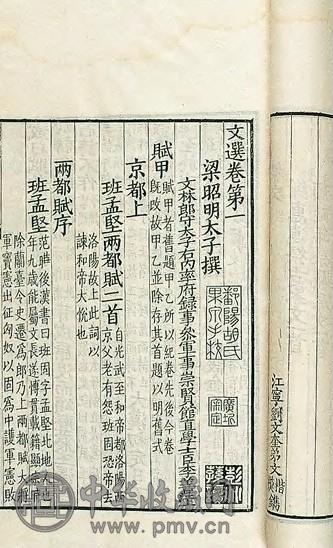 江寧劉文奎弟文楷模鐫
文選卷第一
梁昭明太子撰
文林郎守太子右內率府錄事參軍事崇賢館直學士臣李善
賦甲
賦甲者舊題甲乙所以紀卷先後今卷
既改故甲乙並除存其首題以明舊式
京都上
班孟堅兩都賦二首
自光武至和帝都洛陽西
京父老有怨班固恐帝去
洛陽故上此詞以
諫和帝大悅也
兩都賦序
班孟堅
范曄後漢書曰班固字孟堅北地人
年九歲能屬文長遂博貫載籍顯宗時
除蘭臺令史遷為郎乃上兩都賦大將
軍竇憲出征匈奴以固為中護軍憲敗
鄱陽胡氏
廣圻審定
中华收藏网
www.pmv.cn